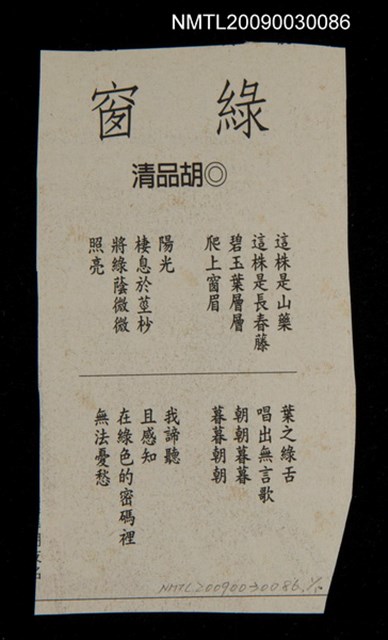 NMTL20090030086
綠窗
◎胡品清
這株是山藥
這株是長春藤
碧玉葉層層
爬上窗眉
陽光
棲息於莖杪
將綠蔭微微
照亮
葉之綠舌
唱出無言歌
朝朝暮暮
暮暮朝朝
我諦聽
且感知
在綠色的密碼裡
無法憂愁
NMTL20090030086